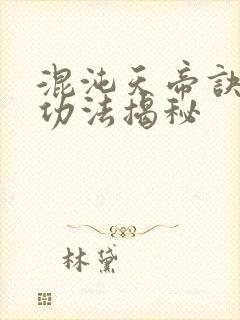 混沌天帝诀
功法揭秘
林黛